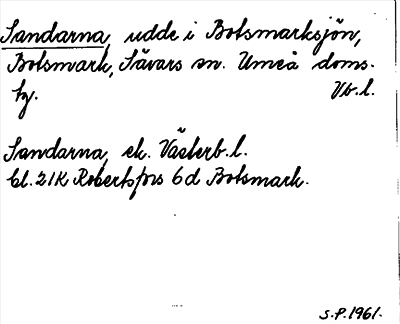 Sandarna, udde i Botsmarksjön,
Botsmark, Sävars sn. Umeå doms.
hg. Vb.l.
Sandarna, ek. Västerb.l.
bl. 21K Robertsfors 6d Botsmark.
S.P. 1961.